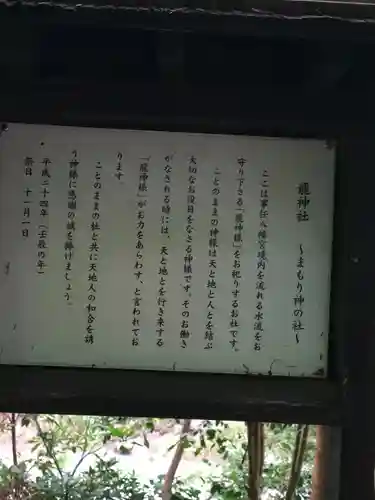 龍神社 ～まもり神の社～
ここは事任八幡宮境内を流れる水流をお
守り下さる「龍神様」をお祀りするお社です。
ことのままの神様は天と地と人とを結ぶ
大切なお役目をなさる神様です。そのお働き
がなされる時には、天と地とを行き来する
「龍神様」がお力をあらわす、と言われてお
ります
ことのままの社と共に天地人の和合を誘
う神様に感謝の誠を捧げましょう。
平成二十四年（壬辰の年）
祭日 十一月一日